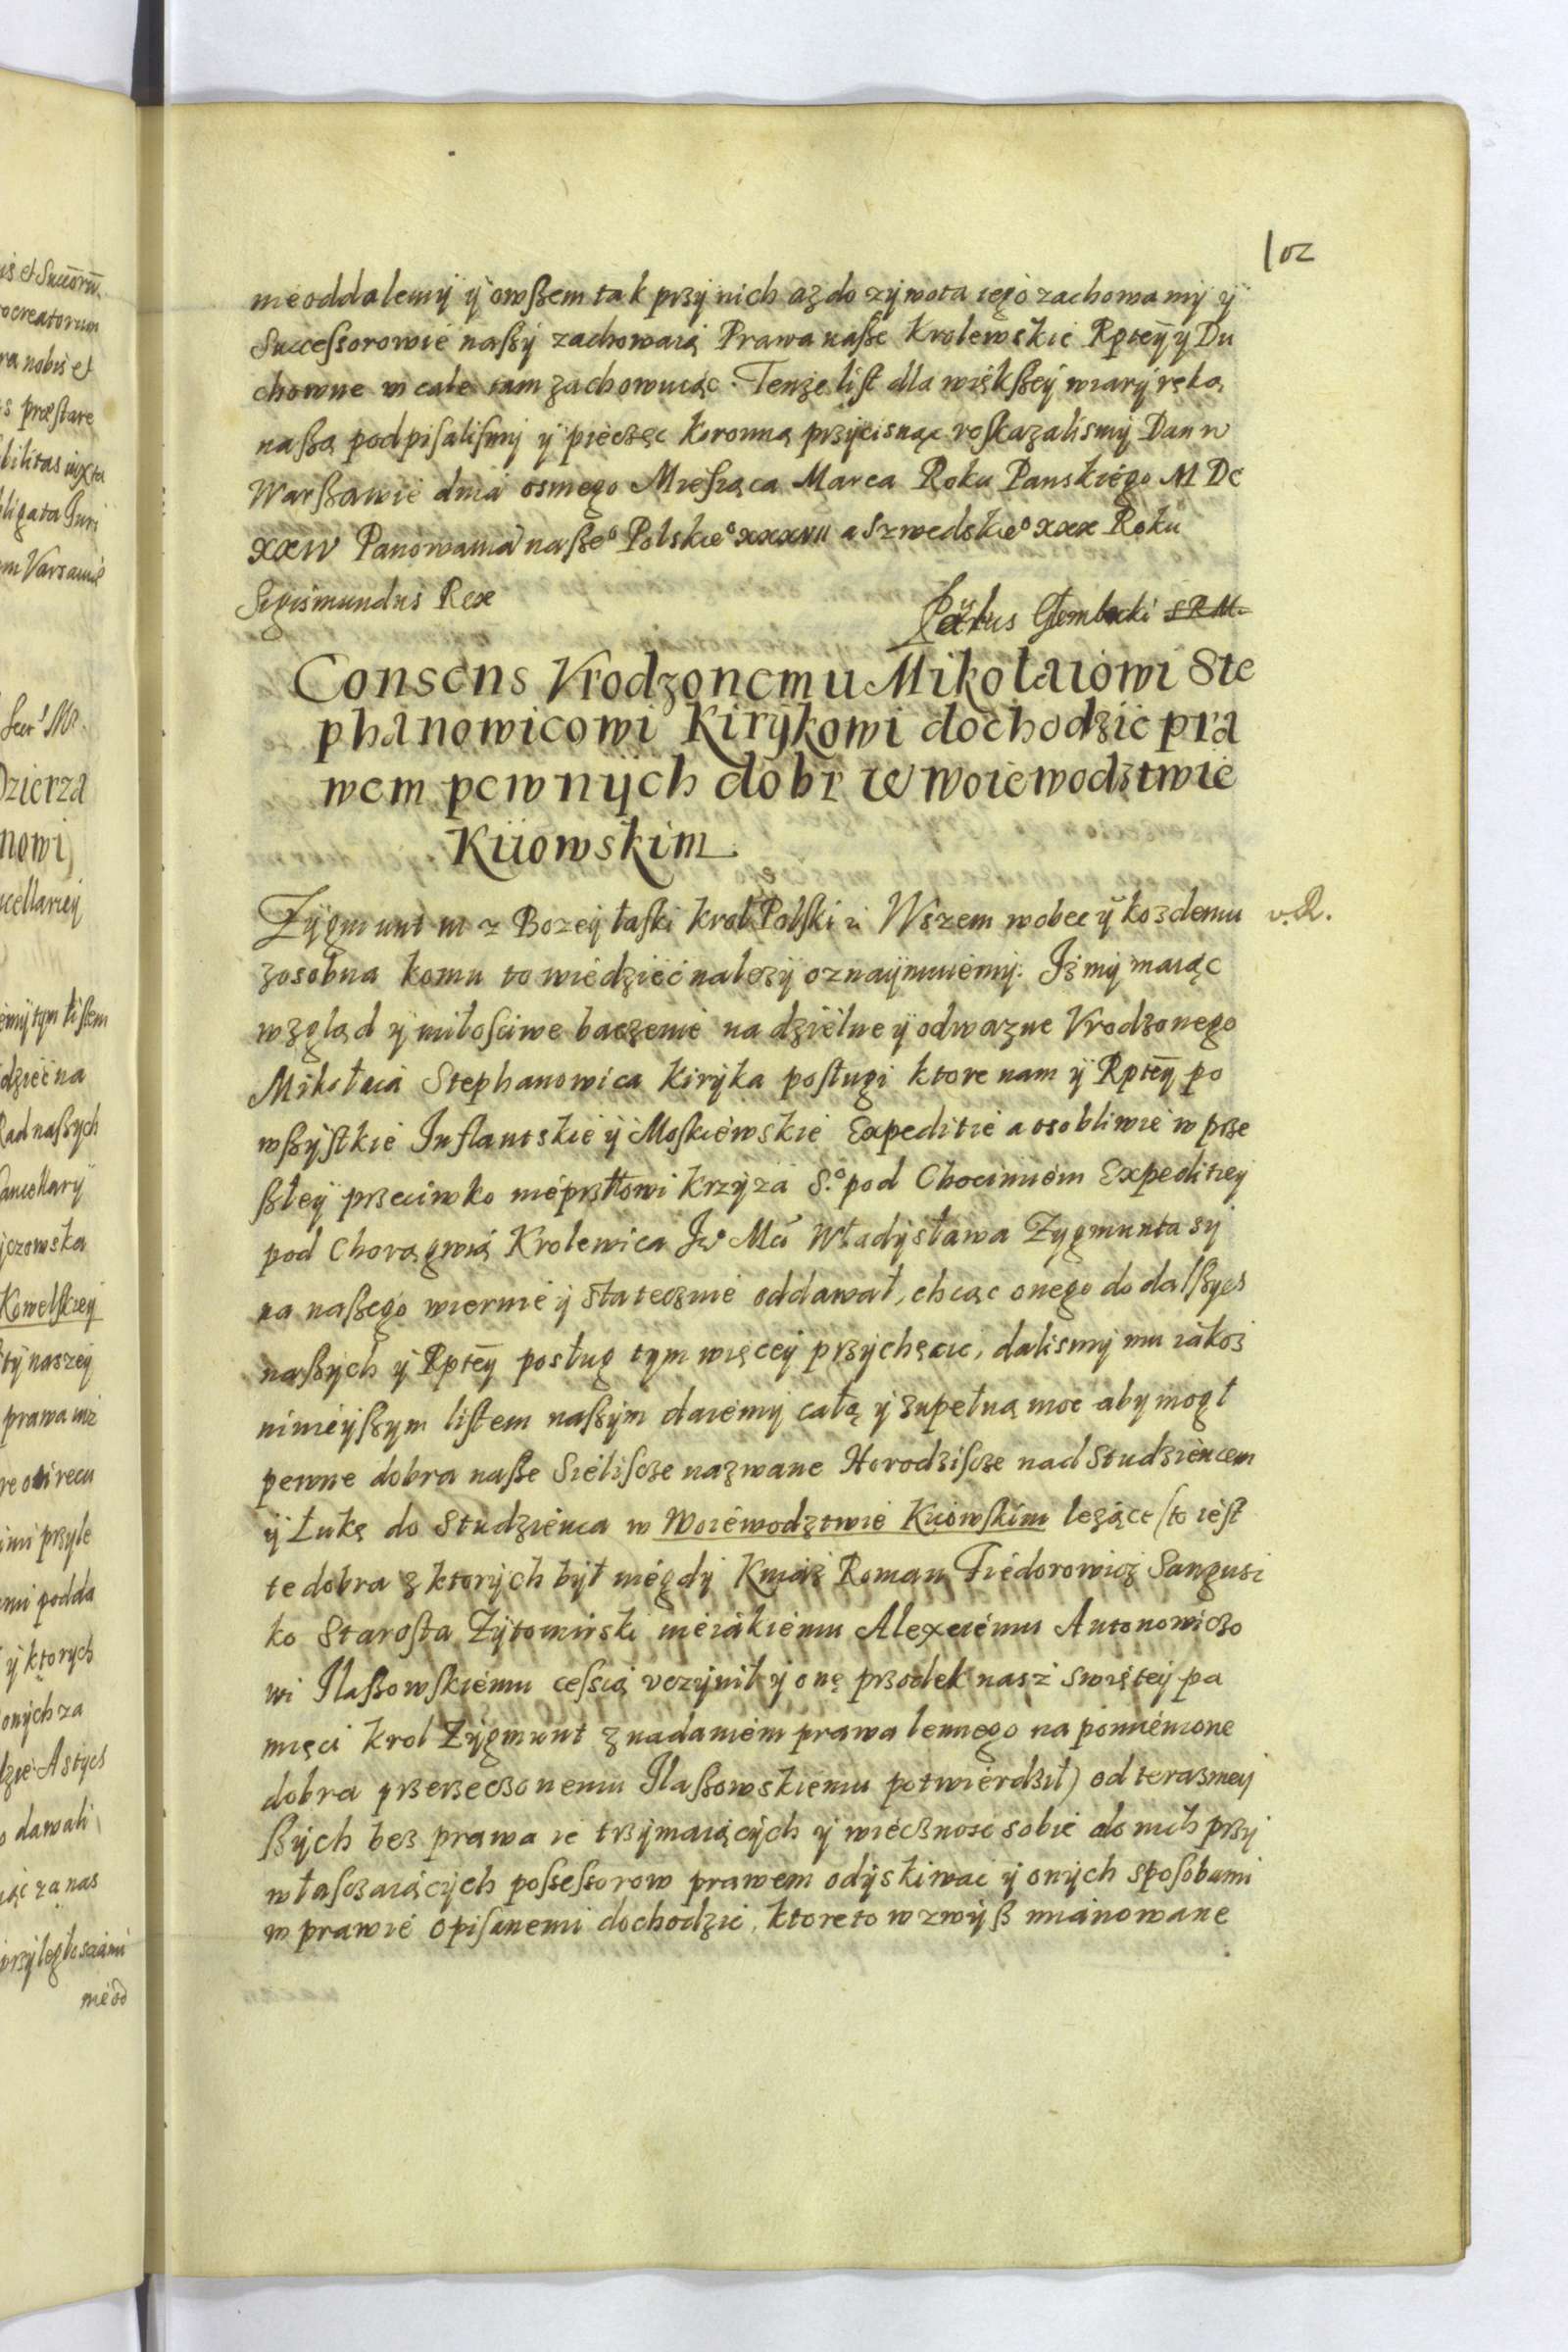 102
nieoddalemy ÿ owßem tak przÿ nich aż do zÿwota iego zachowamÿ ÿ
Successorowie naßÿ zachowaią Prawa naße Krolewskie Rptey ÿ Du
chowne w cale tam zachowuiąc. Tenże list dla więkßeÿ wiarÿ ręką
naßą podpisalismÿ ÿ pieczęc koronną przÿcisnąc roskazalismÿ Dan w
Warßawie dnia osmego Miesiąca Marca Roku Panskiego M DC
XXIV Panowania naßeº Polskieº XXXVII a Szwedskieº XXX Roku
Sigismundus Rex
Gembicki
Consens Vrodzonemu Mikołaiowi Ste
phanowicowi Kirÿkowi dochodzic pra
wem pewnÿch dobr w woiewodztwie
Kiiowskim
Zÿgmunt III z Bozeÿ łaski krol Polski Wszem wobec ÿ kożdemu
v. R.
zosobna komu to wiedziec należÿ oznaÿmuiemÿ. Iż mÿ maiąc
wzgląd ÿ miłosciwe baczenie na dzielne ÿ odwazne Vrodzonego
Mikołaia Stephanowica Kirÿka posługi ktore nam ÿ Rpteÿ po
wßÿstkie Inflantskie ÿ Moskiewskie Expeditie a osobliwie w prze
ßłeÿ przeciwko nieprzÿłowi Krzÿza S.º pod Chocimiem Expeditieÿ
pod Chorągwią Krolewica Jº Mci Władÿsława Zygmunta sÿ
na naßego wiernie ÿ statecznie oddawał, chcąc onego do dalßych
naßÿch ÿ Rpteÿ posług tym więceÿ przÿchęcic, dalismÿ mu iakoż
ninieÿßym listem naßÿm daiemÿ całą ÿ zupełną moc aby mogł
pewne dobra naße Sieliscze nazwane Horodziscze nad Studziencem
ÿ Łukę do Studzienca w Woiewodztwie Kiiowskim leżące (to iest
te dobra z ktorÿch bÿł niegdÿ Kniaź Roman Fiedorowicz Sangusz
ko Starosta Zÿtomirski nieiakiemu Alexiemu Antonowiczo
wi Ilaßowskiemu cessią vczÿnił ÿ onę przodek nasz swięteÿ pa
mięci krol Zÿgmunt z nadaniem prawa lennego na pomienione
dobra przerzeczonemu Ilaßowskiemu potwierdził) od teraznieÿ
ßÿch bez prawa ie trzÿmaiącÿch ÿ wiecznosc sobie do nich przÿ
właszczaiącÿch possessorow prawem odÿskiwac ÿ onÿch sposobami
w prawie opisanemi dochodzic, ktore to wzwÿß mianowane